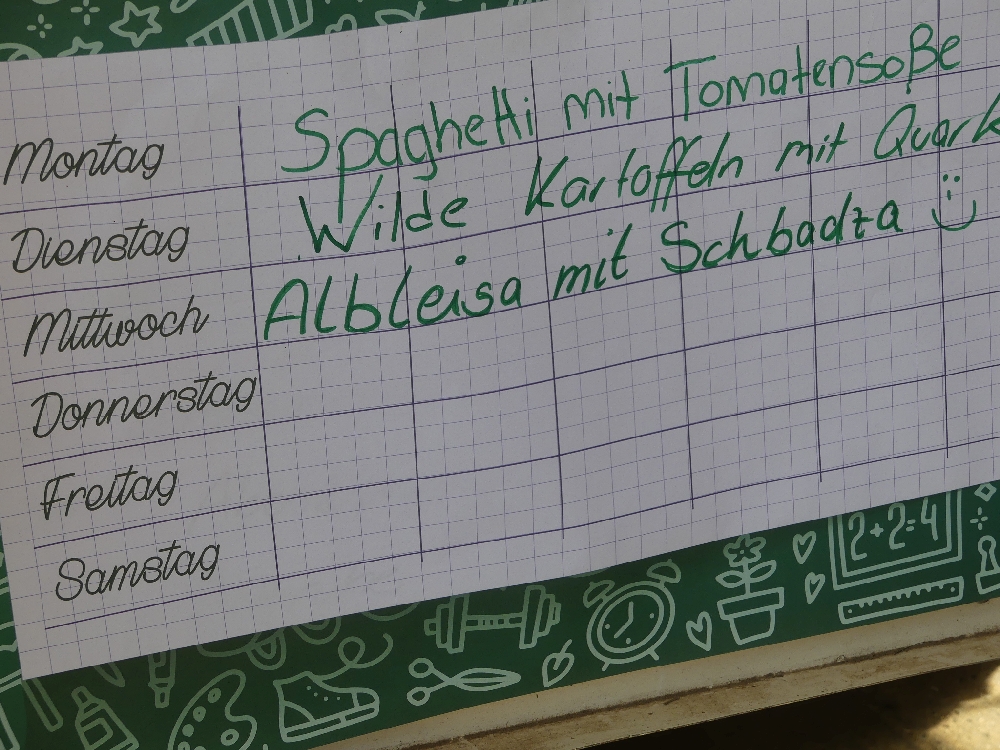 Montag Spaghetti mit Tomatensoße
Dienstag Wilde Kartoffeln mit Quark
Mittwoch Albleisa mit Schbadza :)
Donnerstag
Freitag
Samstag
2+2=4